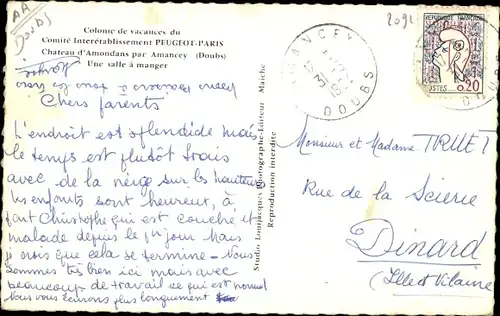 AA
Doubs
Colonie de vacances du
Comité Interétablissement PEUGEOT-PARIS
Chateau d'Amondans par Amancey (Doubs)
Une salle à manger
Chers parents
L'endroit est splendide mais
le temps est plutôt frais
avec de la neige sur les hauteurs
les enfants sont heureux, à
part Christophe qui est couché et
malade depuis le 1er jour Mais
je crois que cela se termine - Nous
sommes très bien ici mais avec
beaucoup de travail ce qui est normal
Nous vous écrirons plus longuement
Studio Lonojacques Photographe-Editeur Maîche
Reproduction interdite
AMANCEY
DOUBS
REPUBLIQUE FRANÇAISE
POSTES 0,20
Monsieur et Madame
Rue de la Scierie
Dinard
(Ille et Vilaine)